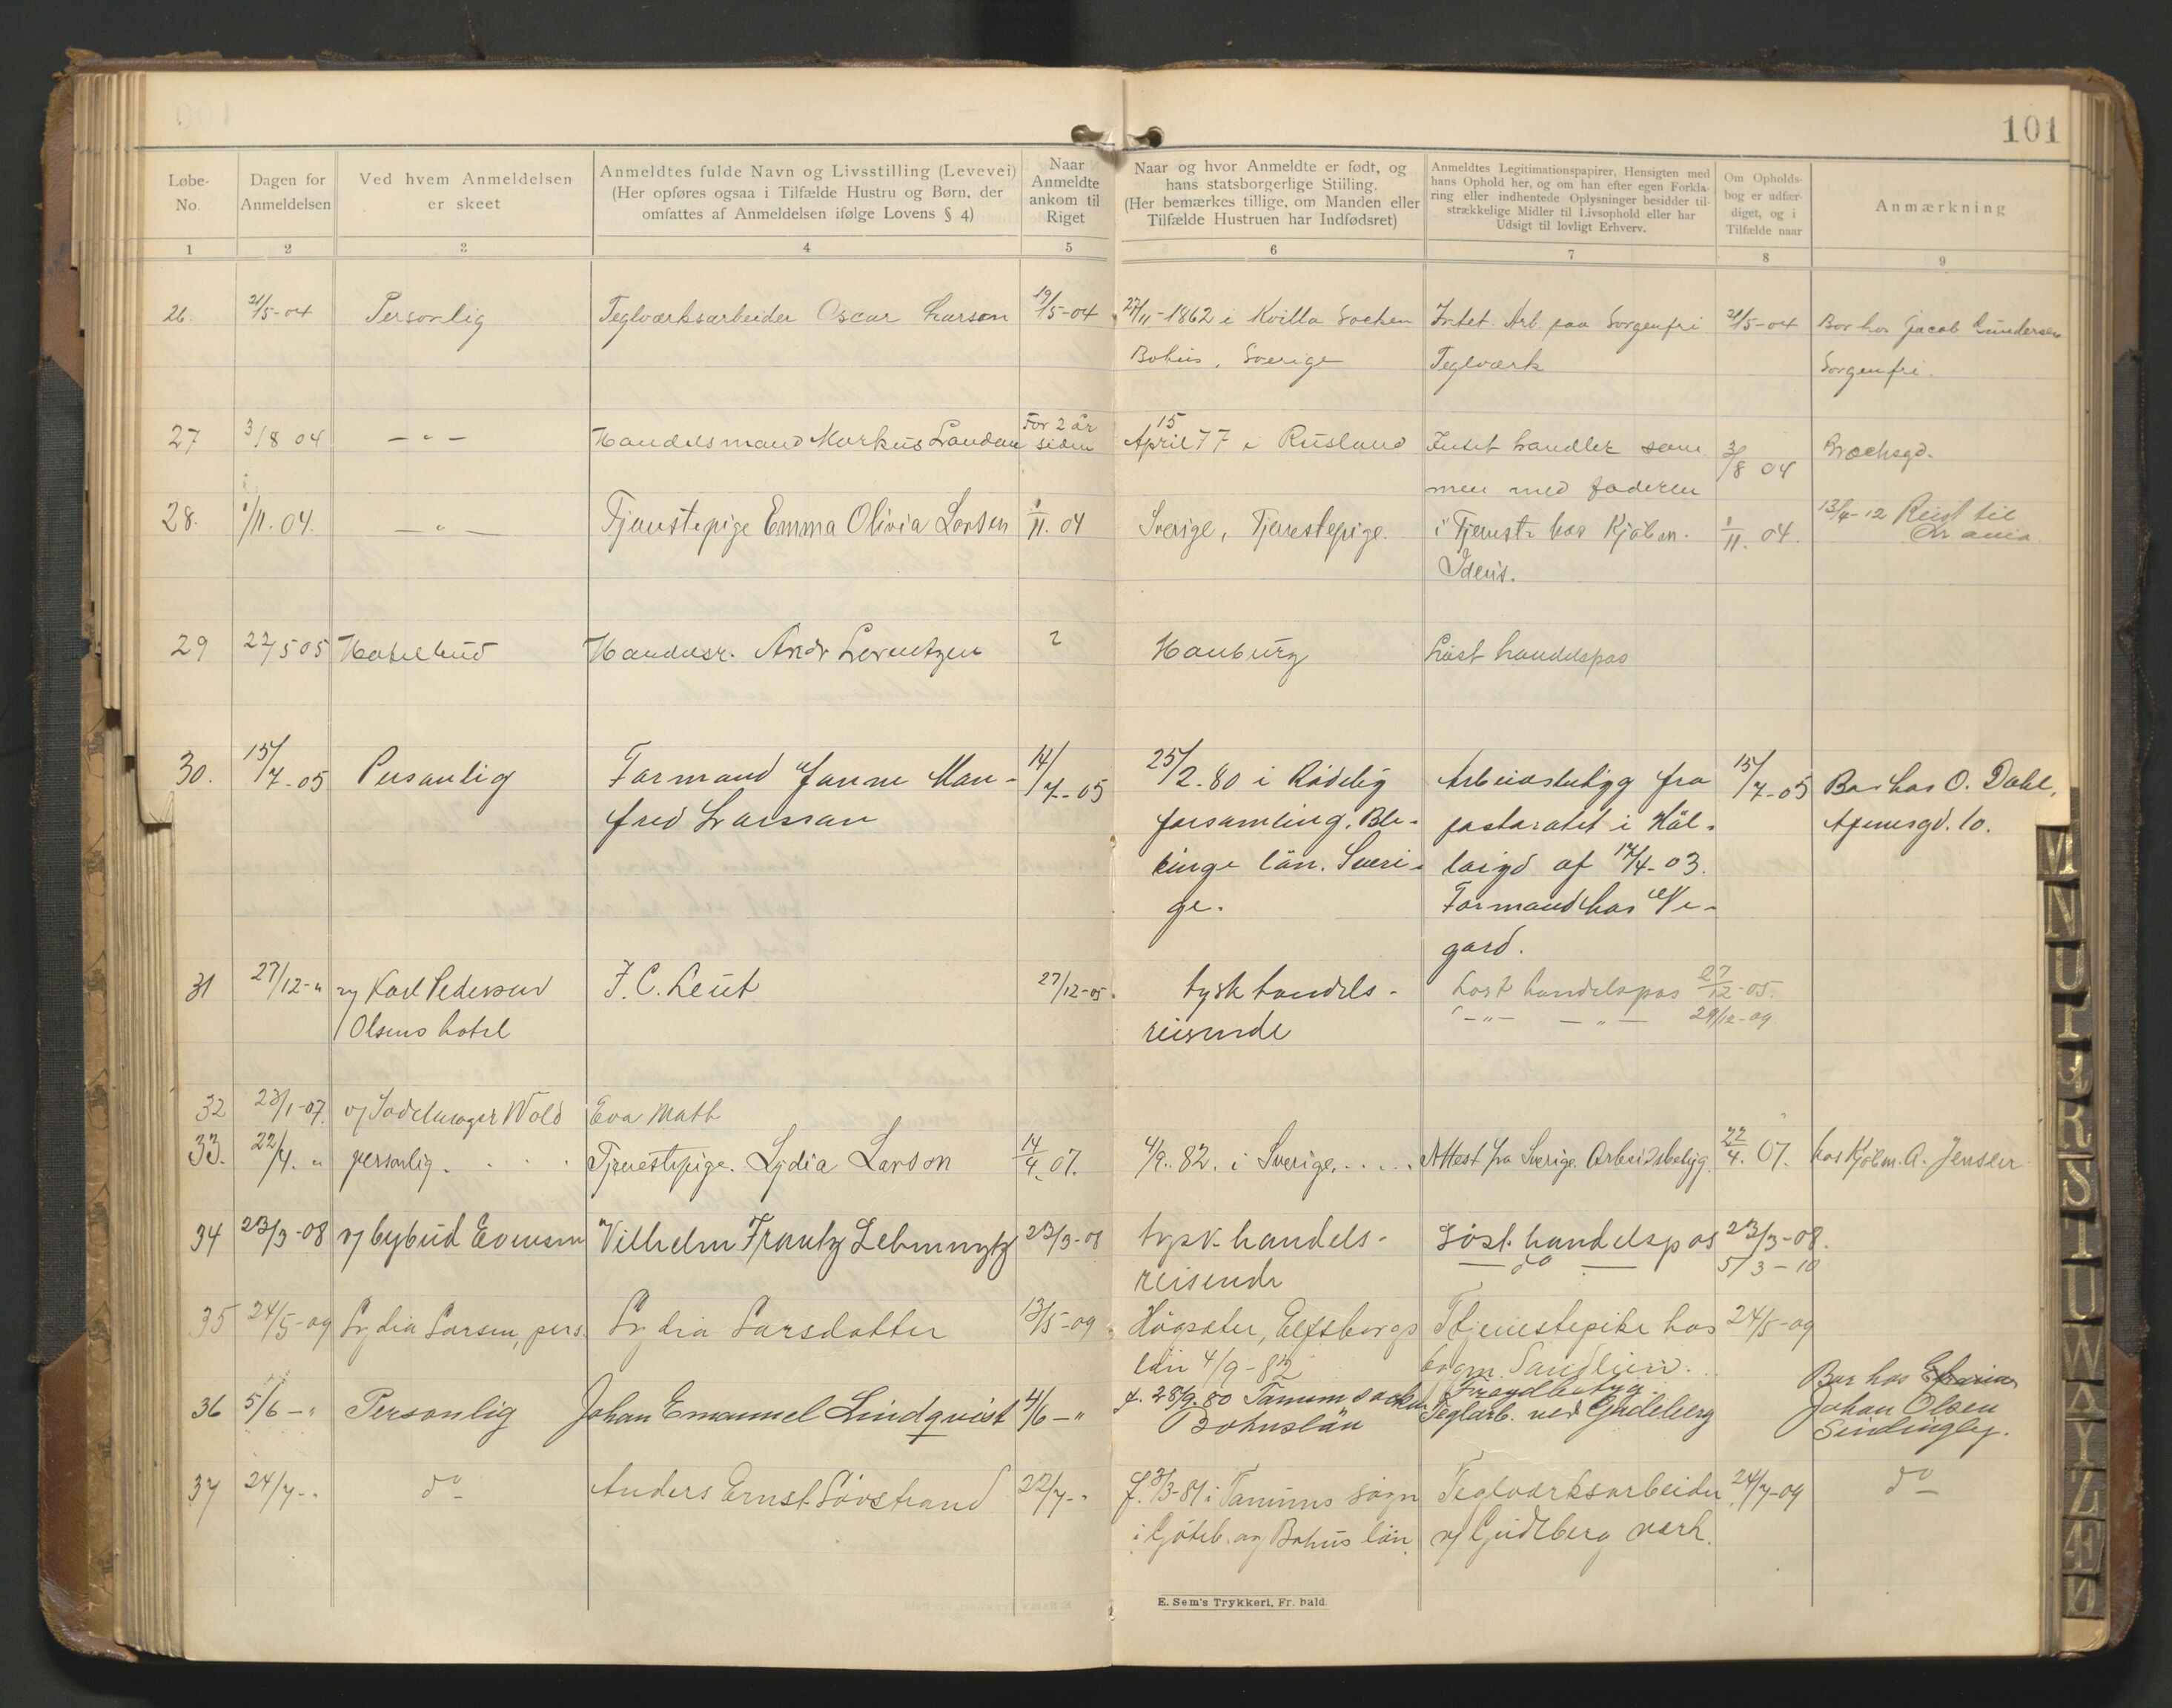 101
Løbe-
No.
Dagen for
Anmeldelsen
Ved hvem Anmeldelsen
er skeet
Anmeldtes fulde Navn og Livsstilling (Levevei)
(Her opføres ogsaa i Tilfælde Hustru og Børn, der
omfattes af Anmeldelsen ifølge Lovens § 4)
Naar
Anmeldte
ankom til
Riget
Naar og hvor Anmeldte er født, og
hans statsborgerlige Stilling.
(Her bemærkes tillige, om Manden eller
Tilfælde Hustruen har Indfødsret)
Anmeldtes Legitimationspapirer, Hensigten med
hans Ophold her, og om han efter egen Forkla-
ring eller indhentede Oplysninger besidder til-
strækkelige Midler til Livsophold eller har
Udsigt til lovligt Erhverv.
Om Opholds-
bog er udfær-
diget, og i
Tilfælde naar
Anmærkning
1 2 3 4 5 6 7 8 9
26. 21/5-04 Personlig Teglværksarbeider Oscar Larson 19/5-04 27/11-1862 i Kvilla Socken Intet. Arb. paa Sorgenfri 21/5-04 Bor hos Jacob Gundersen
Bohus, Sverige Teglværk Sorgenfri.
27 3/8 04 — " — Handelsmand Markus Landau For 2 år siden 15 April 77 i Rusland Intet handler sam 3/8 04 Brochsgd.
men med faderen
28. 1/11. 04. — " — Tjenestepige Emma Olivia Larsen 1/11. 04 Sverige, Tjenestepige. i Tjenest hos Kjøbm. 1/11. 04. 13/4-12 Reist til
Iden's. Kr ania.
29 22/5 05 Hotelbud Handelsr. Andr Lorentzen ? Hamburg Løst handelspas
30. 15/7-05 Personlig Formand Janne Man- 14/7-05 25/2-80 i Rödeby Arbeidsbetyg fra 15/7-05 Bor hos O. Dahl,
fred Larsson forsamling, Ble- pastoratet i Häl-
kinge län. Sveri- af 17/4-03.
ge. Formand hos Ve-
gard.
31 27/12-" v/ Karl Pedersen F. C. Leut 27/12-05 tysk handels- Løst handelspas 27/12-05.
/Olsens hotel reisende — " — — " — 29/12-09
32 23/1-07. v/ Sadelmager Wold Eva Math
33. 22/4. " personlig. Tjenestepige. Lydia Larson 14/4. 07. 4/9. 82. i Sverige. Attest fra Sverige. Arbeidsbetyg. 22/4. 07. hos Kjøbm. A. Jensen
34 23/3-08 v/ bybud Evensen Vilhelm Frantz 23/3-08 tysk handels- Løst handelspas 23/3-08.
reisende — do — 5/3-10
35 24/5-09 Lydia Larsen, pers. Lydia Larsdatter 13/5-09 Högsäter, Elfsborgs Tjenestepike hos 24/5-09
län 4/9-82
36 5/6 - " Personlig Johan Emanuel Lindqvist 4/6 - " f. 28/9. 80 Tanum socken Frejdbetyg. Bor hos
Bohuslän Teglarb. ved Gudeberg Johan Olsen
37 24/7 - " do Anders Ernst Søvstrand 22/7 - " f. 3/3-81 i Tanums sogn Teglværksarbeider 24/7-09 do
i Göteb. og Bohus län. v/ Gudeberg værk.
E. Sem's Trykkeri, Fr. hald.
M
N
O
P
Q
R
S
T
U
W
A
Y
Z
Æ
Ø